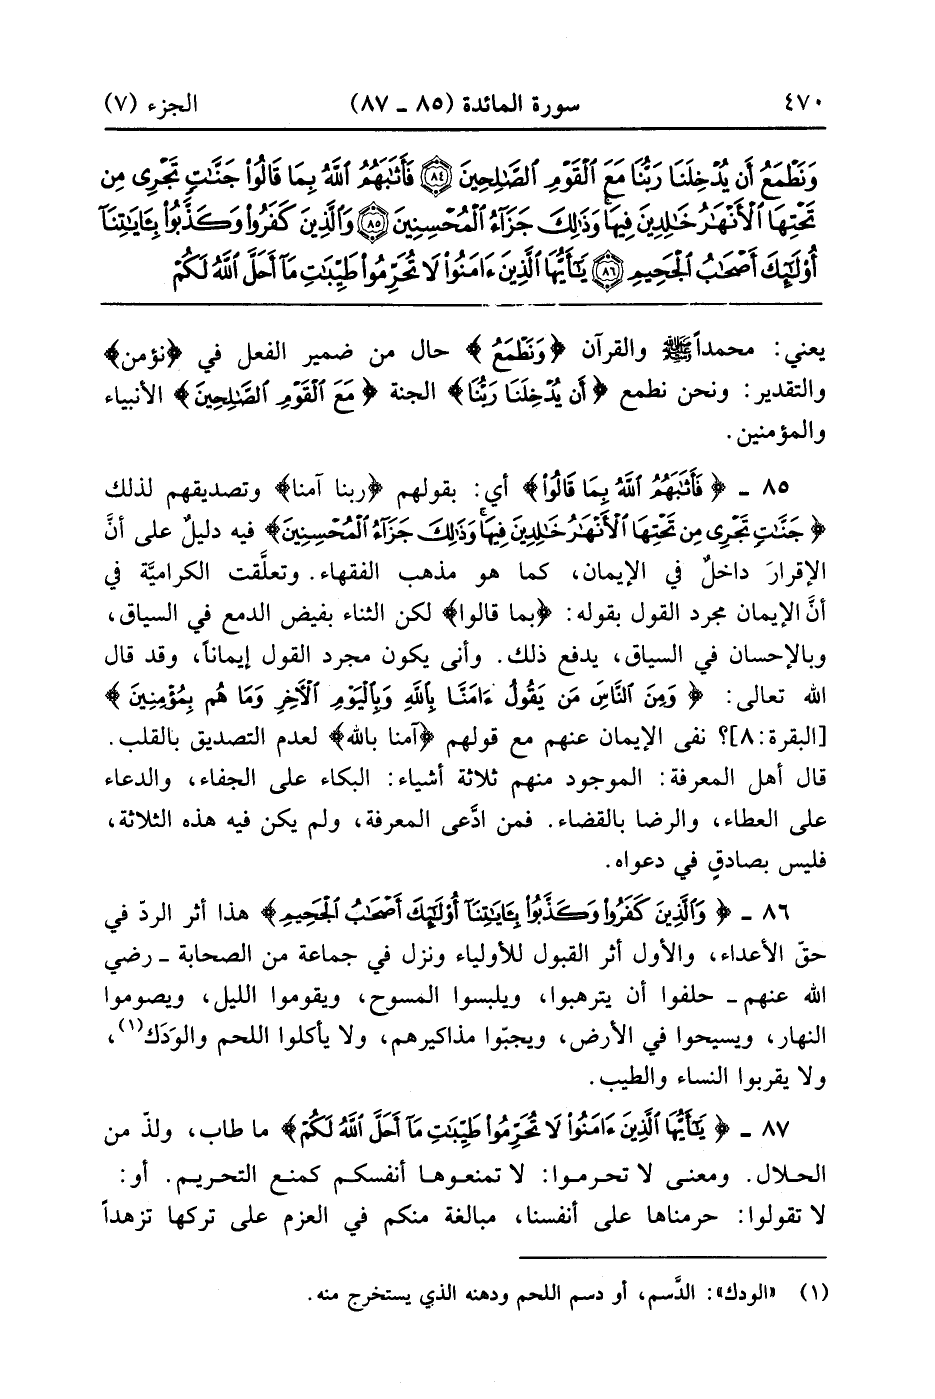 ٤٧٠ سورة المائدة (٨٥ ـ ٨٧) الجزء (٧)
وَنَطْمَعُ أَن يُدْخِلَنَا رَبُّنَا مَعَ ٱلْقَوْمِ ٱلصَّٰلِحِينَ ﴿٨٤﴾ فَأَثَٰبَهُمُ ٱللَّهُ بِمَا قَالُوا۟ جَنَّٰتٍ تَجْرِى مِن
تَحْتِهَا ٱلْأَنْهَٰرُ خَٰلِدِينَ فِيهَا ۚ وَذَٰلِكَ جَزَآءُ ٱلْمُحْسِنِينَ ﴿٨٥﴾ وَٱلَّذِينَ كَفَرُوا۟ وَكَذَّبُوا۟ بِـَٔايَٰتِنَآ
أُو۟لَٰٓئِكَ أَصْحَٰبُ ٱلْجَحِيمِ ﴿٨٦﴾ يَٰٓأَيُّهَا ٱلَّذِينَ ءَامَنُوا۟ لَا تُحَرِّمُوا۟ طَيِّبَٰتِ مَآ أَحَلَّ ٱللَّهُ لَكُمْ
يعني: محمداً ﷺ والقرآن ﴿وَنَطْمَعُ﴾ حال من ضمير الفعل في ﴿نؤمن﴾
والتقدير: ونحن نطمع ﴿أَن يُدْخِلَنَا رَبُّنَا﴾ الجنة ﴿مَعَ ٱلْقَوْمِ ٱلصَّٰلِحِينَ﴾ الأنبياء
والمؤمنين.
٨٥ ـ ﴿فَأَثَٰبَهُمُ ٱللَّهُ بِمَا قَالُوا۟﴾ أي: بقولهم ﴿ربنا آمنا﴾ وتصديقهم لذلك
﴿جَنَّٰتٍ تَجْرِى مِن تَحْتِهَا ٱلْأَنْهَٰرُ خَٰلِدِينَ فِيهَا ۚ وَذَٰلِكَ جَزَآءُ ٱلْمُحْسِنِينَ﴾ فيه دليلٌ على أنَّ
الإقرارَ داخلٌ في الإيمان، كما هو مذهب الفقهاء. وتعلَّقت الكراميَّة في
أنَّ الإيمان مجرد القول بقوله: ﴿بما قالوا﴾ لكن الثناء بفيض الدمع في السياق،
وبالإحسان في السياق، يدفع ذلك. وأنى يكون مجرد القول إيماناً، وقد قال
الله تعالى: ﴿وَمِنَ ٱلنَّاسِ مَن يَقُولُ ءَامَنَّا بِٱللَّهِ وَبِٱلْيَوْمِ ٱلْءَاخِرِ وَمَا هُم بِمُؤْمِنِينَ﴾
[البقرة: ٨]؟ نفى الإيمان عنهم مع قولهم ﴿آمنا بالله﴾ لعدم التصديق بالقلب.
قال أهل المعرفة: الموجود منهم ثلاثة أشياء: البكاء على الجفاء، والدعاء
على العطاء، والرضا بالقضاء. فمن ادَّعى المعرفة، ولم يكن فيه هذه الثلاثة،
فليس بصادقٍ في دعواه.
٨٦ ـ ﴿وَٱلَّذِينَ كَفَرُوا۟ وَكَذَّبُوا۟ بِـَٔايَٰتِنَآ أُو۟لَٰٓئِكَ أَصْحَٰبُ ٱلْجَحِيمِ﴾ هذا أثر الردّ في
حقّ الأعداء، والأول أثر القبول للأولياء ونزل في جماعة من الصحابة ـ رضي
الله عنهم ـ حلفوا أن يترهبوا، ويلبسوا المسوح، ويقوموا الليل، ويصوموا
النهار، ويسيحوا في الأرض، ويجبّوا مذاكيرهم، ولا يأكلوا اللحم والوَدَك(١)،
ولا يقربوا النساء والطيب.
٨٧ ـ ﴿يَٰٓأَيُّهَا ٱلَّذِينَ ءَامَنُوا۟ لَا تُحَرِّمُوا۟ طَيِّبَٰتِ مَآ أَحَلَّ ٱللَّهُ لَكُمْ﴾ ما طاب، ولذّ من
الحلال. ومعنى لا تحرموا: لا تمنعوها أنفسكم كمنع التحريم. أو:
لا تقولوا: حرمناها على أنفسنا، مبالغة منكم في العزم على تركها تزهداً
(١) «الودك»: الدَّسم، أو دسم اللحم ودهنه الذي يستخرج منه.